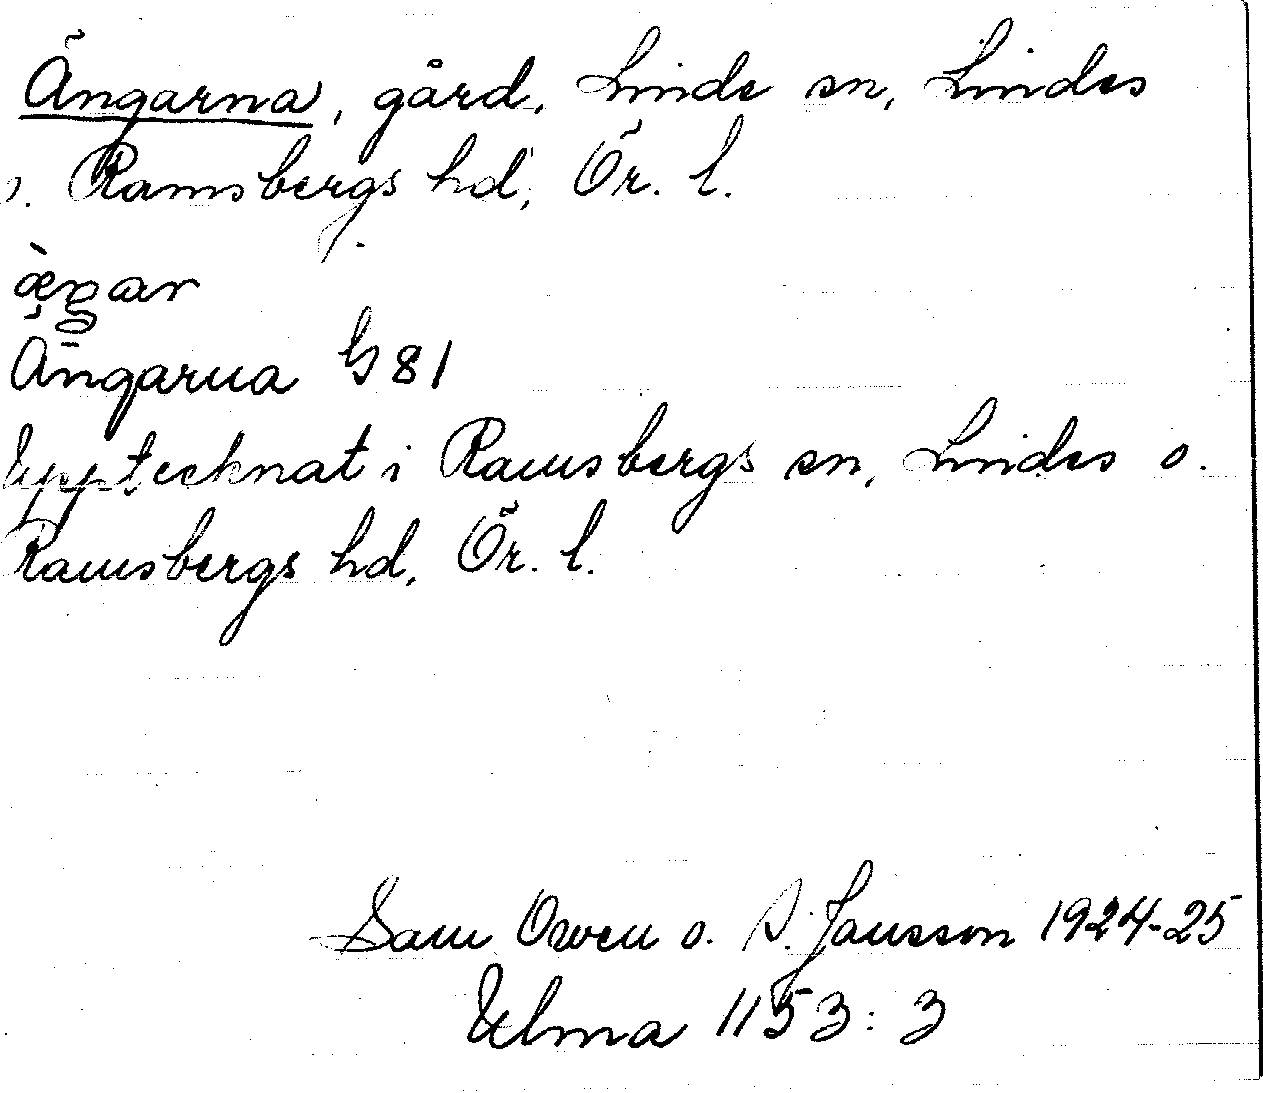 Ängarna, gård, Linde sn, Lindes
o. Ramsbergs hd, Ör. l.
Ängarna G 81
Upptecknat i Ramsbergs sn, Lindes o.
Ramsbergs hd, Ör. l.
Sam Owen o. S. Jansson 1924-25
Ulma 1153:3